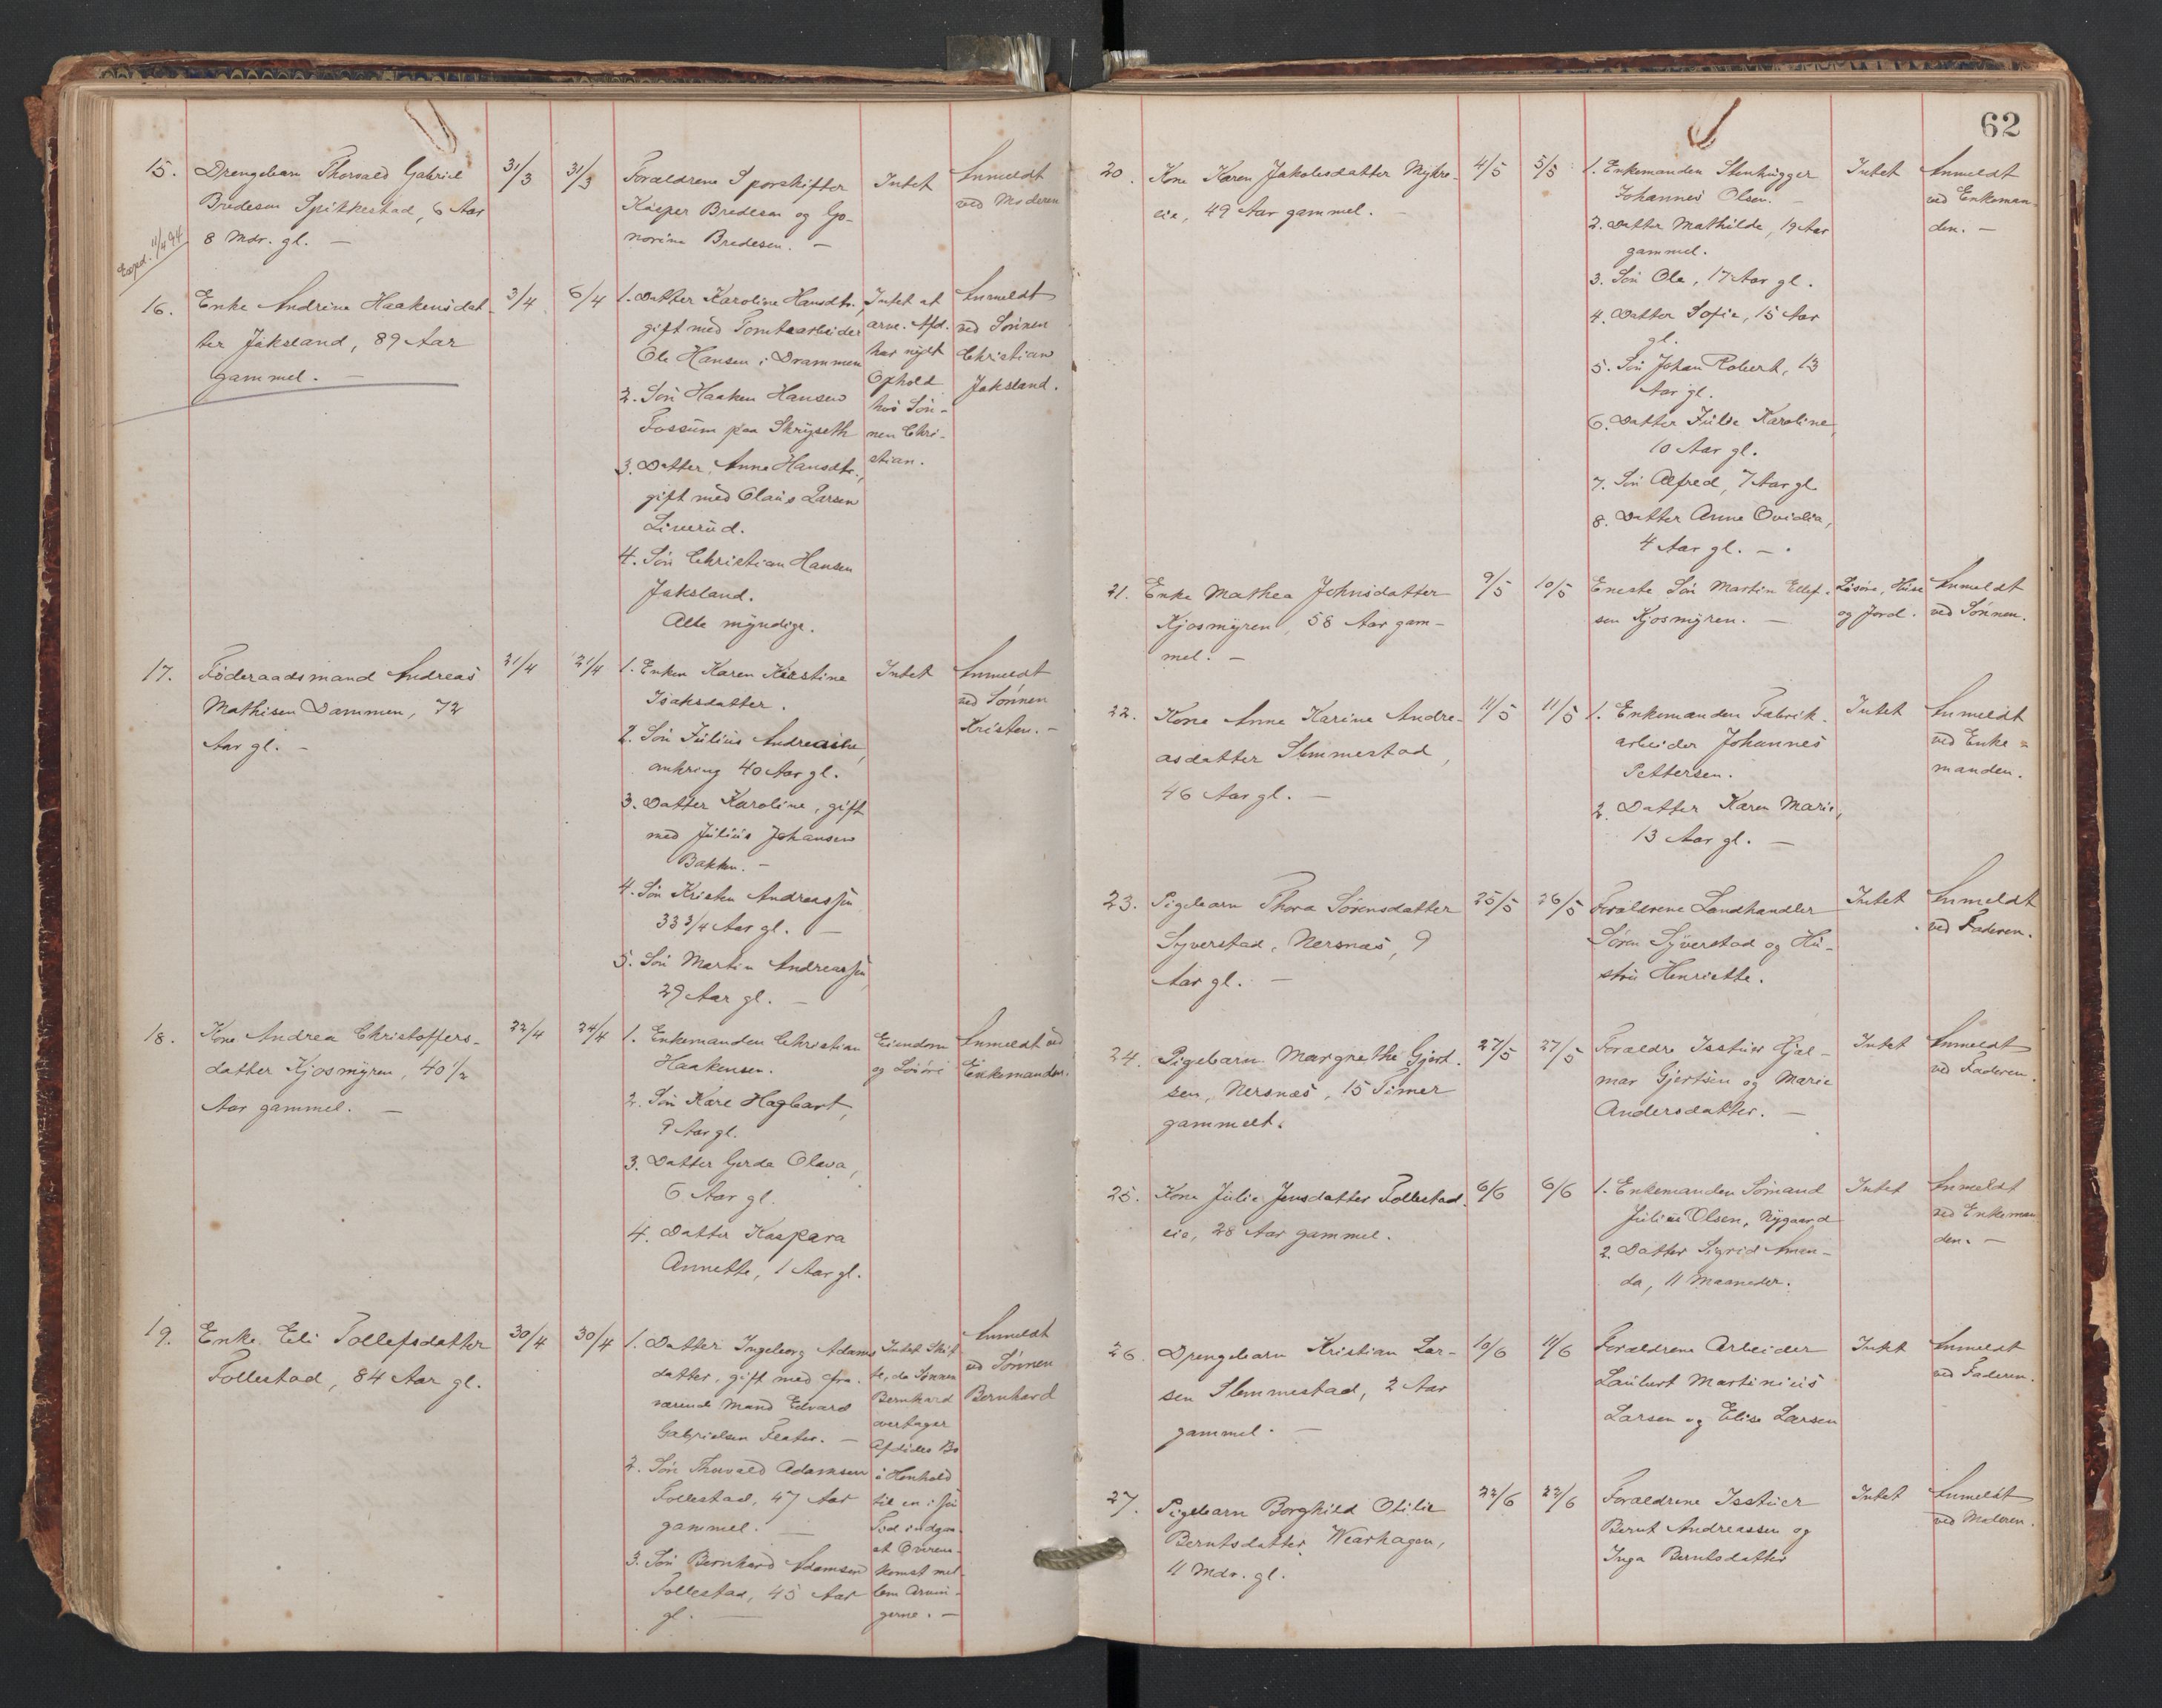 15.
Drengebarn Thorvald Gabriel
Bredesen Spikkestad, 6 Aar
8 Mdr. gl. —
31/3
31/3
Forældrene Sporskifter
Kasper Bredesen og Go-
norina Bredesen. —
Intet
Anmeldt
ved Moderen
Exped. 11/4 94
16.
Enke Andrine Haakensdat-
ter Jaksland, 89 Aar
gammel. —
3/4
6/4
1. Datter Karoline Hansdtr.,
gift med Tomtearbeider
Ole Hansen i Drammen
2. Søn Haaken Hansen
Fossum paa Skryseth
3. Datter Anne Hansdtr.,
gift med Olaus Larsen
Linerud.
4. Søn Christian Hansen
Jaksland.
Alle myndige.
Intet at
arve. Afd.
har nydt
Ophold
hos Søn-
nen Chri-
stian.
Anmeldt
ved Sønnen
Christian
Jaksland.
17.
Føderaadsmand Andreas
Mathisen Dammen, 72
Aar gl. —
21/4
21/4
1. Enken Karen Kirstine
Isaksdatter.
2. Søn Julius Andreassen,
omkring 40 Aar gl.
3. Datter Karoline, gift
med Julius Johansen
Bakken. —
4. Søn Kristen Andreassen
33 3/4 Aar gl. —
5. Søn Martin Andreassen
29 Aar gl. —
Intet
Anmeldt
ved Sønnen
Kristen. —
18.
Kone Andrea Christoffers-
datter Kjosmyren, 40 1/2
Aar gammel. —
22/4
24/4
1. Enkemanden Christian
Haakensen.
2. Søn Kare Hagbart,
9 Aar gl.
3. Datter Gerda Olava,
6 Aar gl.
4. Datter Kaspara
Annette, 1 Aar gl.
Eiendom
og Løsøre
Anmeldt ved
Enkemanden.
19.
Enke Eli Tollefsdatter
Follestad, 84 Aar gl.
30/4
30/4
1. Datter Ingeborg Adams
datter, gift med fra-
værende Mand Edvard
Gabrielsen Fløter. —
2. Søn Thorvald Adamsen
Follestad, 47 Aar
gammel. —
3. Søn Bernhard Adamsen
Follestad, 45 Aar
gl. —
Intet Skif
te, da Sønnen
Bernhard
overtager
Afdødes Bo
i Henhold
til en i sin
Tid indgaa-
et Overens-
komst mel-
lem Arvin-
gerne. —
Anmeldt
ved Sønnen
Bernhard
62
20.
Kone Karen Jakobsdatter Myhre-
eie, 49 Aar gammel. —
4/5
5/5
1. Enkemanden Stenhugger
Johannes Olsen.
2. Datter Mathilde, 19 Aar
gammel.
3. Søn Ole, 17 Aar gl.
4. Datter Sofie, 15 Aar
gl.
5. Søn Johan Robert, 13
Aar gl.
6. Datter Julie Karoline,
10 Aar gl.
7. Søn Alfred, 7 Aar gl.
8. Datter Anne Ovidia,
4 Aar gl. —
Intet
Anmeldt
ved Enkeman-
den. —
21.
Enke Mathea Johnsdatter
Kjosmyren, 58 Aar gam-
mel. —
9/5
10/5
Eneste Søn Martin Ellef-
sen Kjosmyren. —
Løsøre, Huse
og Jord.
Anmeldt
ved Sønnen.
22.
Kone Anne Karine Andre-
asdatter Slemmestad,
46 Aar gl. —
11/5
11/5
1. Enkemanden Fabrik-
arbeider Johannes
Pettersen.
2. Datter Karen Marie,
13 Aar gl. —
Intet
Anmeldt
ved Enke-
manden.
23.
Pigebarn Thora Sørensdatter
Syverstad, Nersnæs, 9
Aar gl. —
25/5
26/5
Forældrene Landhandler
Søren Syverstad og Hu-
stru Henriette.
Intet
Anmeldt
ved Faderen.
24.
Pigebarn Margrethe Gjert-
sen, Nersnæs, 15 Timer
gammelt.
27/5
27/5
Forældre Isstuer Hjal-
mar Gjertsen og Marie
Andersdatter. —
Intet
Anmeldt
ved Faderen.
25.
Kone Julie Jensdatter Follestad-
eie, 28 Aar gammel.
6/6
6/6
1. Enkemanden Sømand
Julius Olsen, Nygaard
2. Datter Sigrid Aman-
da, 11 Maaneder.
Intet
Anmeldt
ved Enkeman
den. —
26.
Drengebarn Kristian Lar-
sen Slemmestad, 2 Aar
gammel. —
10/6
11/6
Forældrene Arbeider
Laurits Martinius
Larsen og Elise Larsen
Intet
Anmeldt
ved Faderen.
27.
Pigebarn Borghild Otilie
Berntsdatter Wearhagen,
11 Mdr. gl.
22/6
22/6
Forældrene Isstuer
Bernt Andreassen og
Inga Berntsdatter
Intet
Anmeldt
ved Moderen.